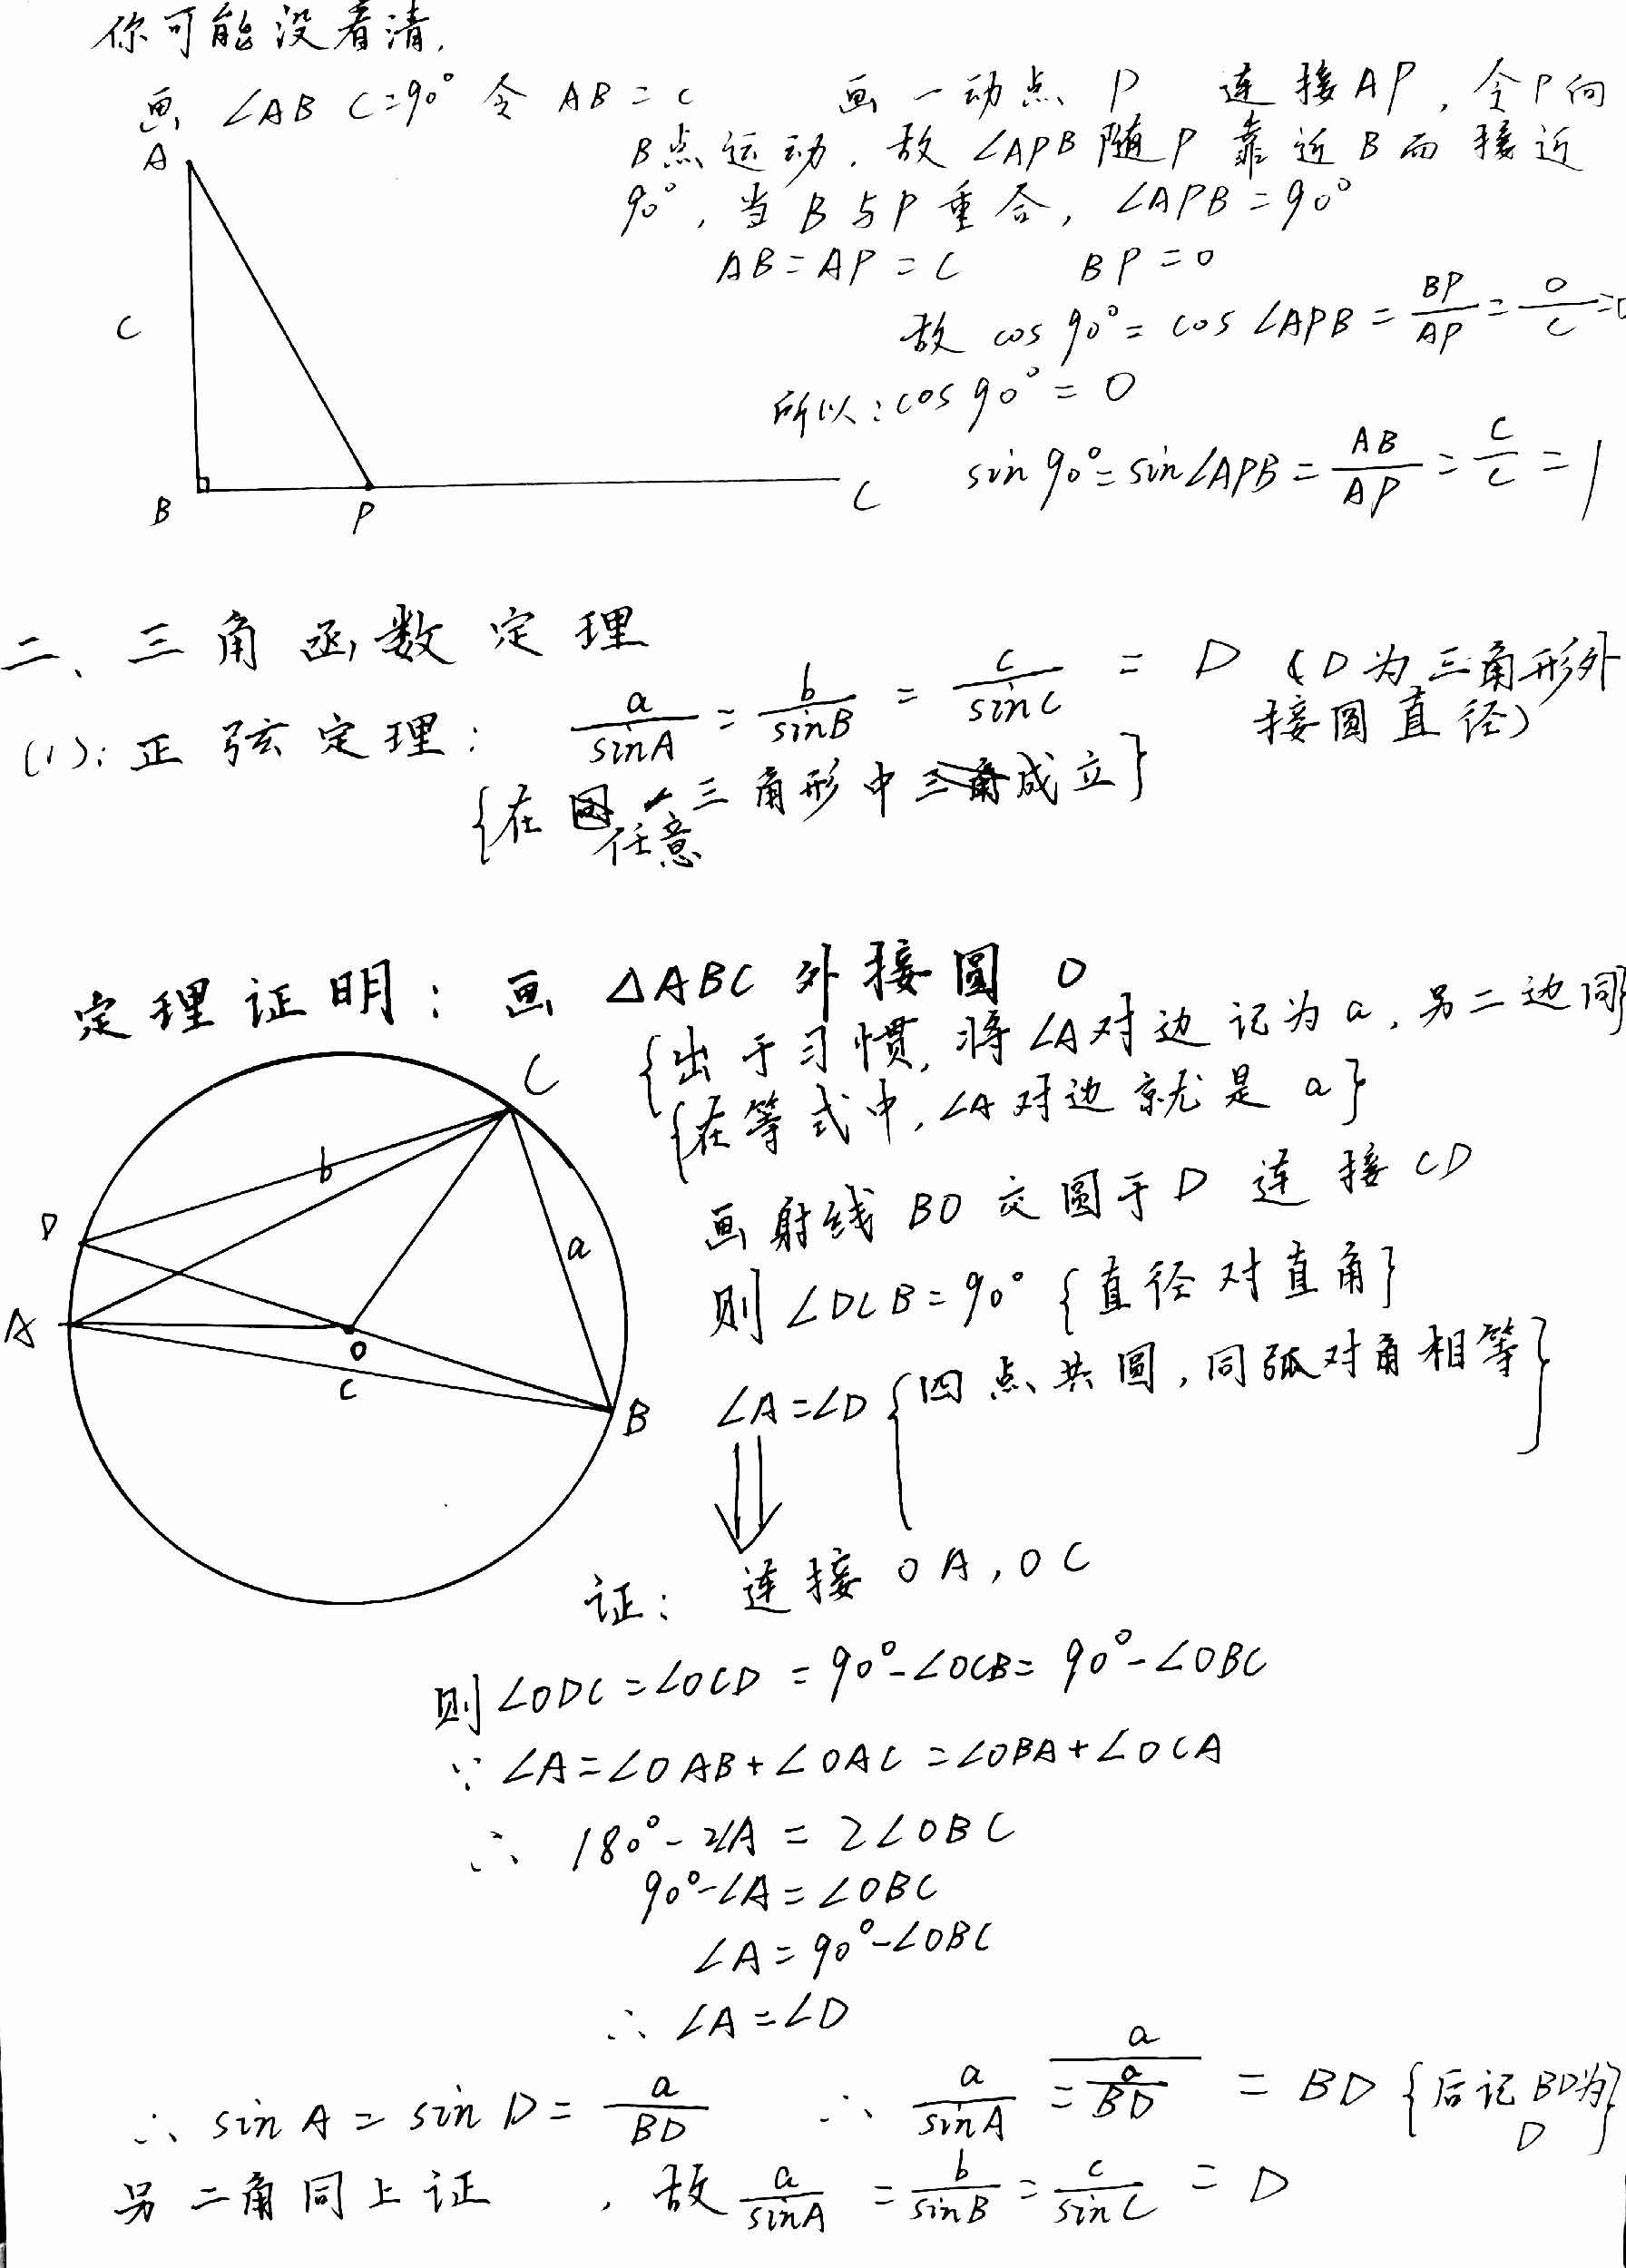 你可能没看清.
画 ∠ABC=90° 令 AB=c 画一动点 P 连接AP, 令P向
B点运动. 故∠APB随P靠近B而接近
90°, 当B与P重合, ∠APB=90°
AB=AP=C BP=0
故 cos90°=cos∠APB=BP/AP=0/C=0
所以:cos90°=0
sin90°=sin∠APB=AB/AP=C/C=1
A
C
B P C
二、三角函数定理
(1):正弦定理: a/sinA=b/sinB=c/sinC=D (D为三角形外
接圆直径)
{在任意三角形中成立}
定理证明:画△ABC外接圆O
{出于习惯,将∠A对边记为a,另二边同}
{在等式中,∠A对边就是a}
画射线BO交圆于D 连接CD
则∠DCB=90°{直径对直角}
∠A=∠D{四点共圆,同弧对角相等}
C
b
D
a
A
O
c
B
证: 连接OA,OC
则∠ODC=∠OCD=90°-∠OCB=90°-∠OBC
∵∠A=∠OAB+∠OAC=∠OBA+∠OCA
∴180°-2∠A=2∠OBC
90°-∠A=∠OBC
∠A=90°-∠OBC
∴∠A=∠D
∴sinA=sinD=a/BD ∴a/sinA=a/(a/BD)=BD{后记BD为D}
另二角同上证,故a/sinA=b/sinB=c/sinC=D